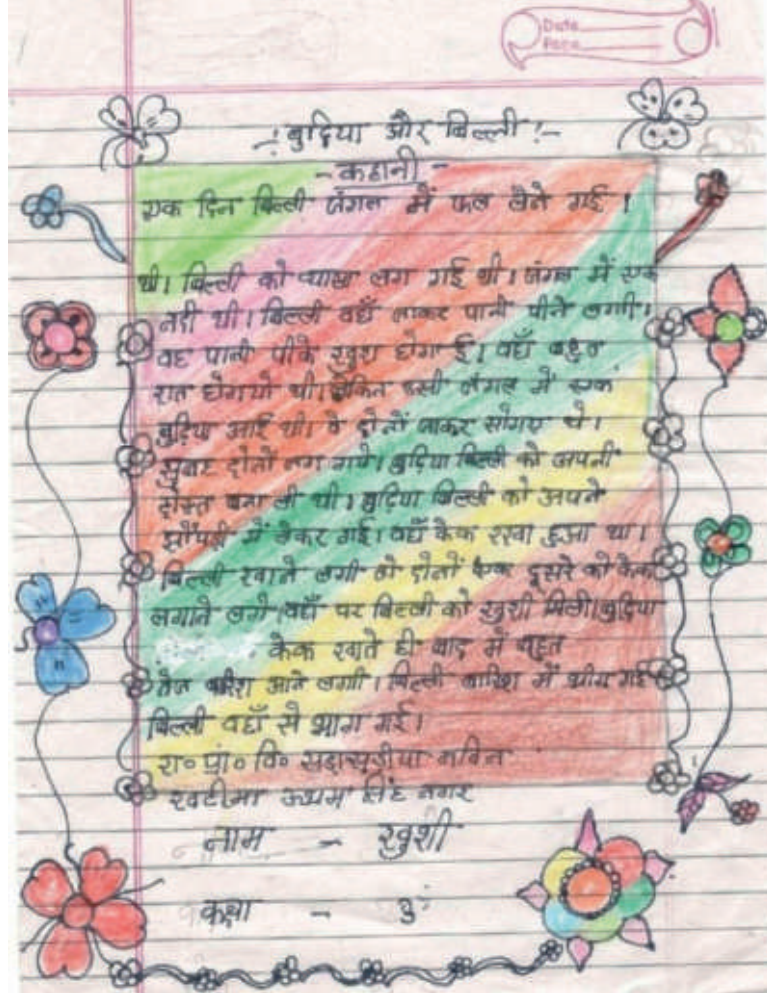 Date
Page
-: बुढ़िया और बिल्ली :-
- कहानी -
एक दिन बिल्ली जंगल में फल लेने गई ।
थी। बिल्ली को प्यास लग गई थी। जंगल में एक
नदी थी। बिल्ली वहाँ जाकर पानी पीने लगी।
वह पानी पीके खुश होगाई। वहाँ बहुत
रात होगयी थी। लेकिन उसी जंगल में एक
बुढ़िया आई थी। वे दोनों जाकर सोगए थे।
सुबह दोनों जग गये। बुढ़िया बिल्ली को अपनी
दोस्त बना ली थी। बुढ़िया बिल्ली को अपने
झोंपड़ी में लेकर गई। वहाँ केक रखा हुआ था।
बिल्ली खाने लगी तो दोनों एक दूसरे को केक
लगाने लगे। वहाँ पर बिल्ली को खुशी मिली। बुढ़िया
केक खाते ही बाद में बहुत
तेज बारिश आने लगी। बिल्ली बारिश में भीग गई
बिल्ली वहाँ से भाग गई।
रा० प्रा० वि० नवीन
खटीमा ऊधम सिंह नगर
नाम - खुशी
कक्षा - 3